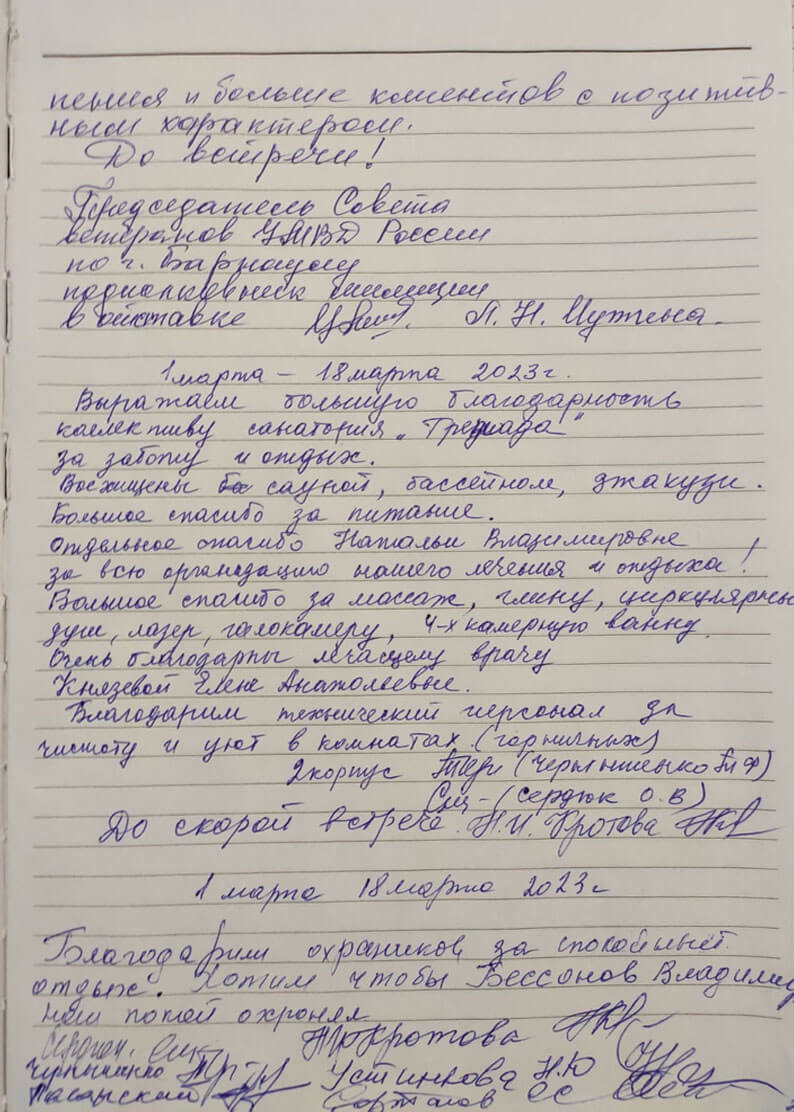 пения и больше клиентов с позитив-
ным характером.
До встречи!
Председатель Совета
ветеранов УМВД России
по г. Барнаулу
подполковник милиции
в отставке Л. Н. Мутина.
1 марта – 18 марта 2023 г.
Выражаем большую благодарность
коллективу санатория
за заботу и отдых.
Восхищены сауной, бассейном, джакузи.
Большое спасибо за питание.
Отдельное спасибо Натальи Владимировне
за всю организацию нашего лечения и отдыха!
Большое спасибо за массаж, глину, циркулярный
душ, лазер, галокамеру, 4-х камерную ванну.
Очень благодарны лечащему врачу
Князевой Елене Анатольевне.
Благодарим технический персонал за
чистоту и уют в комнатах (горничных)
2 корпус (Чернышенко
(Сердюк О.В)
До скорой встрече. Н.И. Кротова
1 марта 18 марта 2023 г
Благодарим охраников за спокойный
отдых. Хотим чтобы Бессонов Владимир
наш покой охронял
Сердюк. Кротова
Чернышенко Устинкова Н.Ю